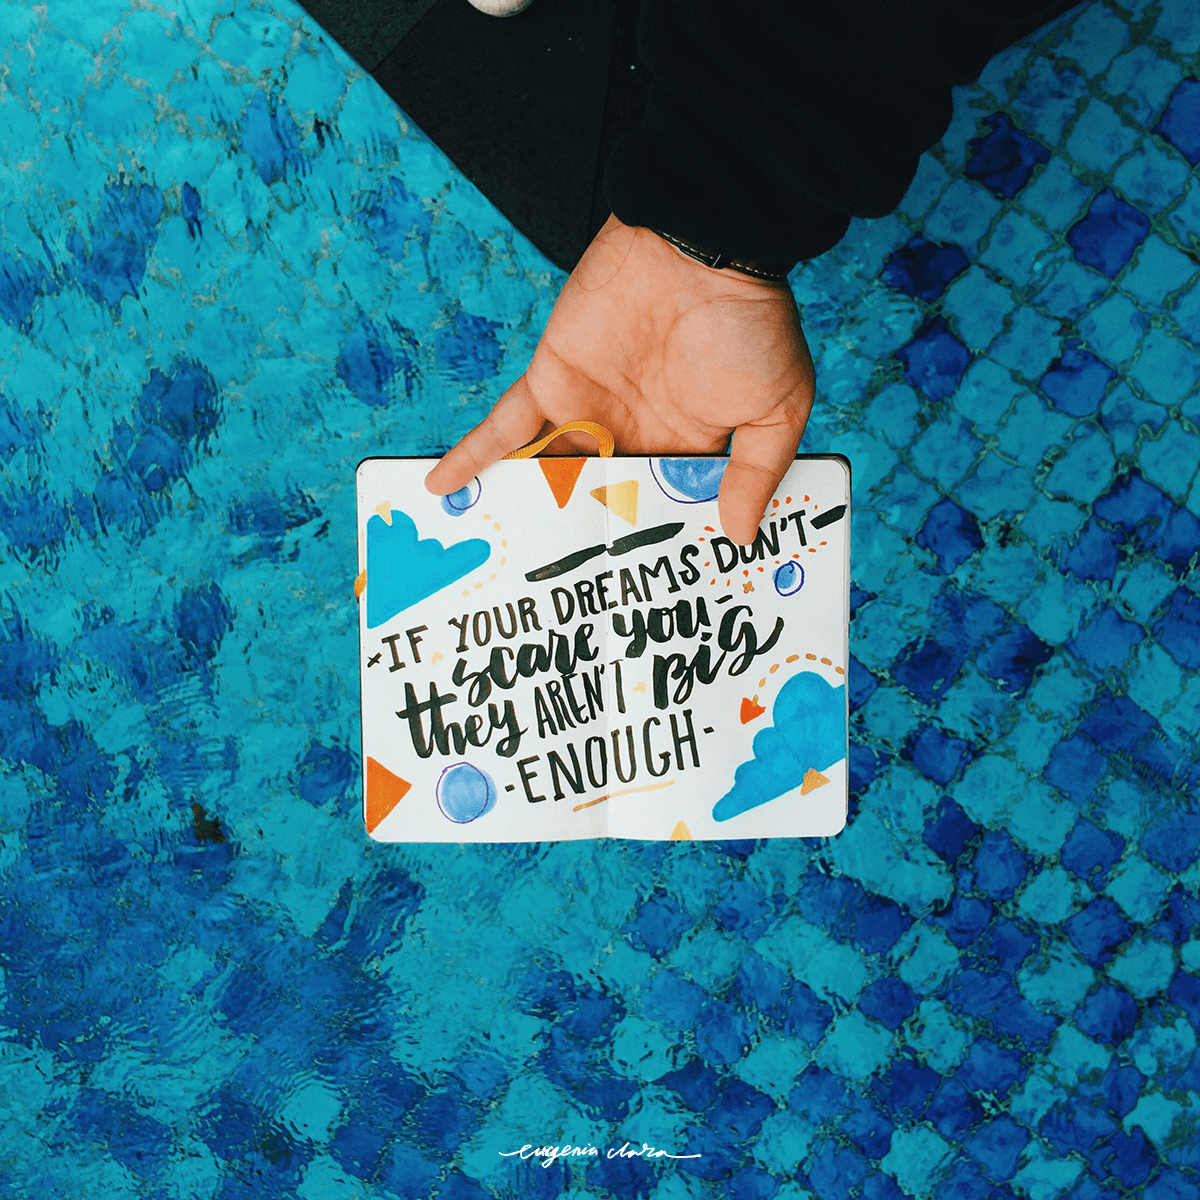 IF YOUR DREAMS DON'T
scare you
they AREN'T BiG
-ENOUGH-
eugenia clara